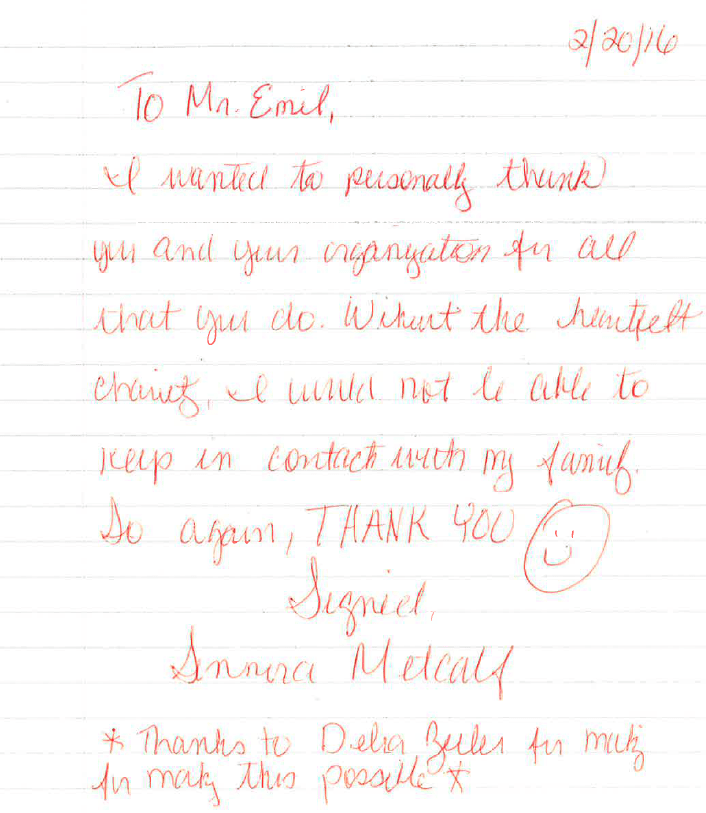 2/20/16
To Mr. Emil,
I wanted to personally thank
you and your organization for all
that you do. Without the heartfelt
charity, I would not be able to
keep in contact with my family.
So again, THANK YOU
Signed,
Metcalf
* Thanks to for making
for making this possible *